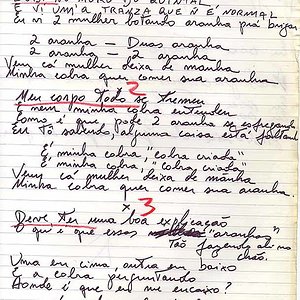 E VI UMA TRANZA QUE Ñ É NORMAL
Eu vi 2 mulher botando aranha prá brigar
2 aranha – Duas aranha
2 aranha – 2 aranha
Vem cá mulher deixa de manha
Minha cobra quer comer sua aranha
2
Meu corpo todo se tremeu
E nem minha cobra entendeu
Como é que pode 2 aranha se esfregando
Eu Tô sabendo, alguma coisa está faltando
É minha cobra, "cobra criada"
É minha cobra, "cobra criada"
Vem cá mulher deixa de manha
Minha cobra quer comer sua aranha.
x 3
Deve ter uma boa explicação
O que é que essas "aranhas"
Tão fazendo ali no
chão.
Uma em cima, outra em baixo
E a cobra perguntando
Aonde é que eu me encaixo?